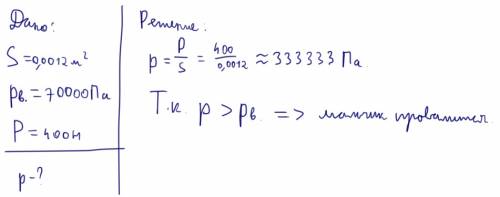 Дано:
S = 0,0012 м²
pв. = 70000 Па
P = 400 Н
p - ?
Решение:
p = P/S = 400/0,0012 ≈ 333333 Па
Т.к. p > pв. => мальчик провалится.